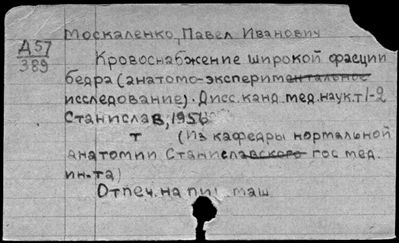 Москаленко, Павел Иванович
Д57
389
Кровоснабжение широкой фасции
бедра (анатомо-экспериментальное
исследование). Дисс. канд. мед. наук. т 1-2
Станислав, 1956
т (Из кафедры нормальной
анатомии Станиславского гос мед.
ин-та)
Отпеч. на пиш. маш.